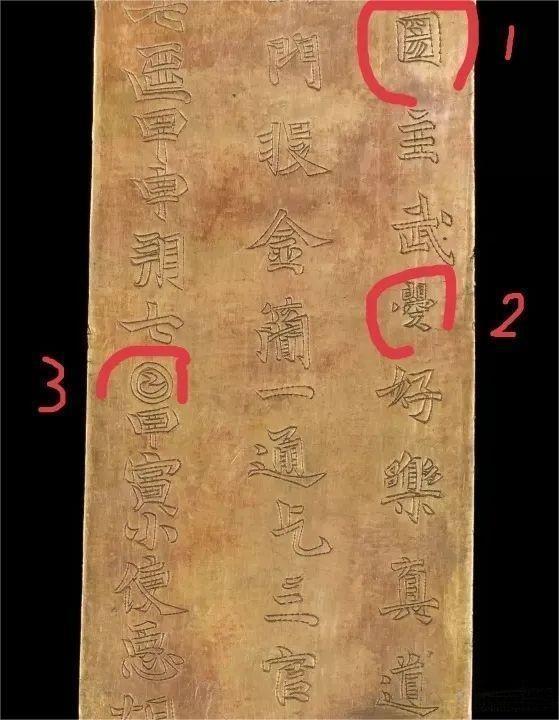 圀主武曌好樂真道
門投金簡一通乞三官
七𠥱甲申朔七𡆠甲寅小使𢘑胡
1
2
3